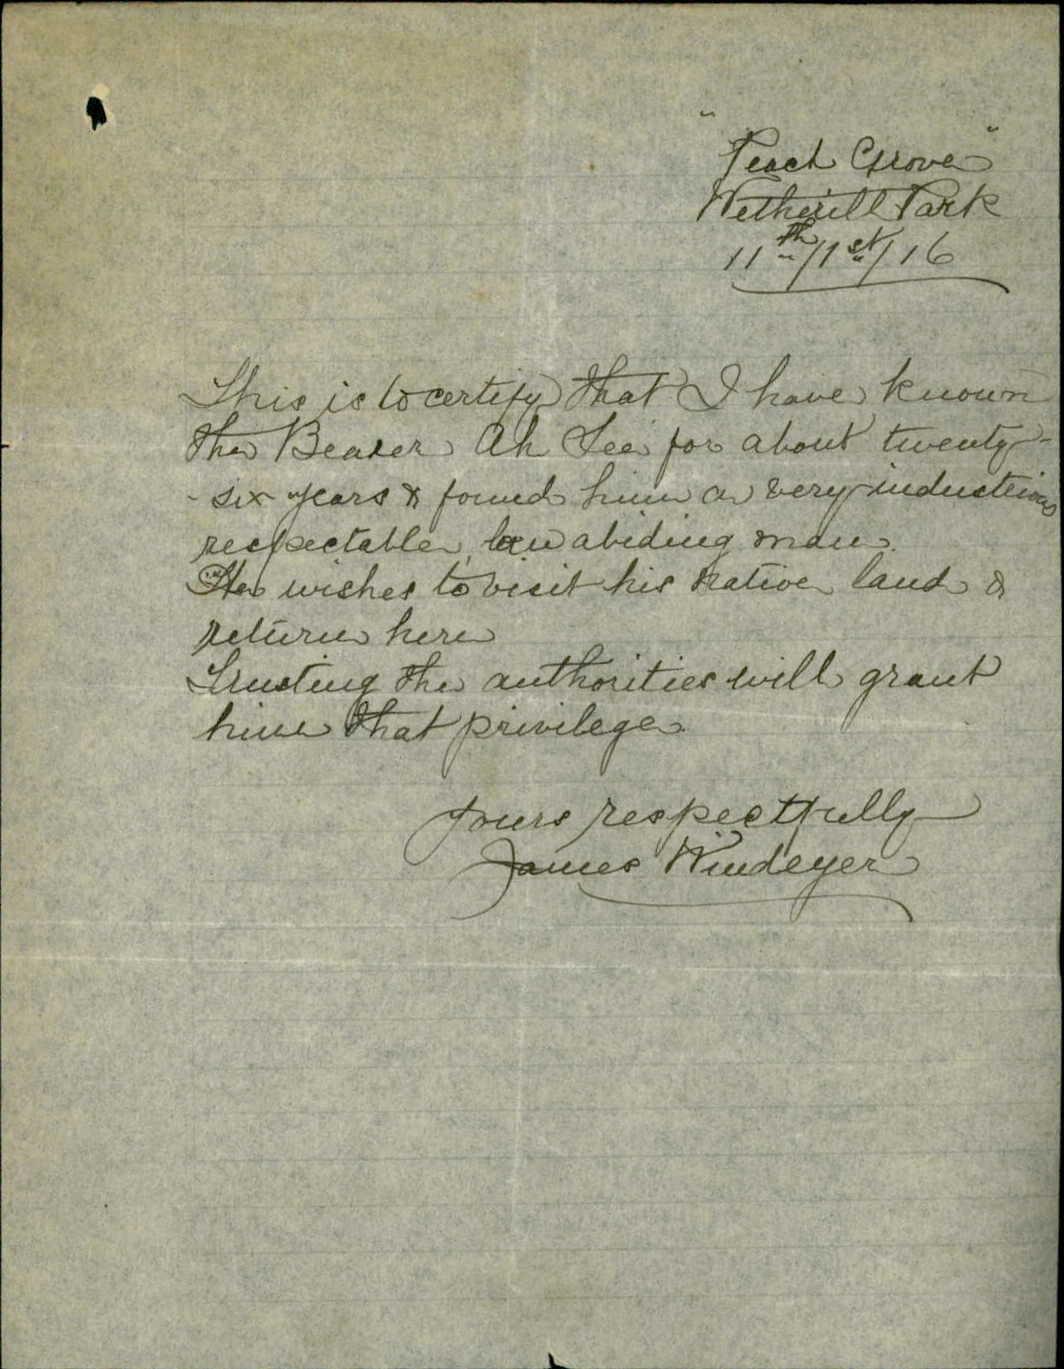 "Peach Grove"
Wetherill Park
11th/1st/16
This is to certify that I have known
the Bearer Ah Lee for about twenty-
-six years & found him a very industrious
respectable, law abiding man.
He wishes to visit his native land &
return here
Trusting the authorities will grant
him that privilege.
Yours respectfully
James Windeyer